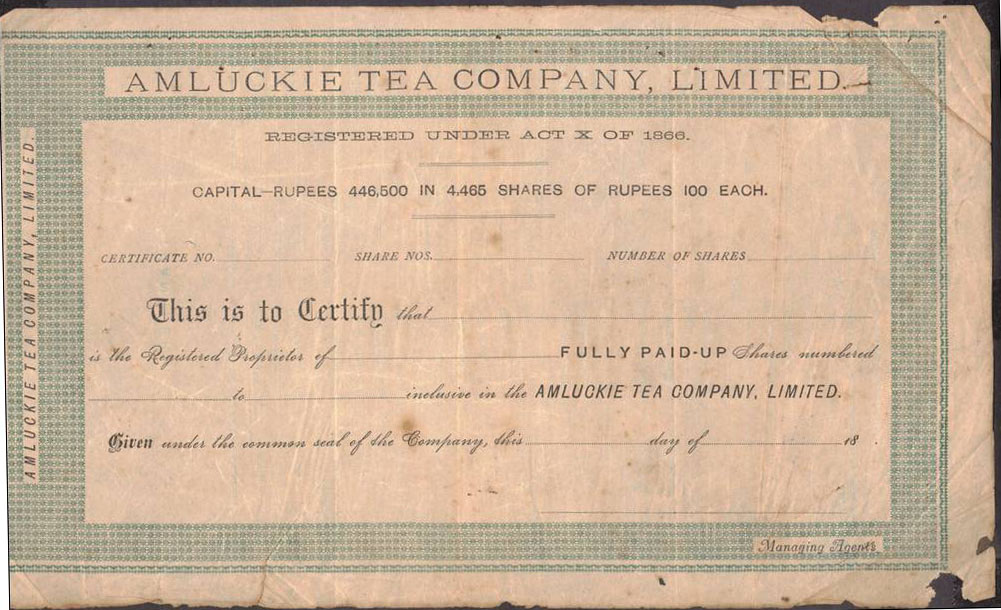 AMLUCKIE TEA COMPANY, LIMITED.
REGISTERED UNDER ACT X OF 1866.
CAPITAL—RUPEES 446,500 IN 4,465 SHARES OF RUPEES 100 EACH.
CERTIFICATE NO. SHARE NOS. NUMBER OF SHARES
This is to Certify that
is the Registered Proprietor of FULLY PAID-UP Shares numbered
to inclusive in the AMLUCKIE TEA COMPANY, LIMITED.
Given under the common seal of the Company, this day of 18 .
Managing Agents
AMLUCKIE TEA COMPANY, LIMITED.